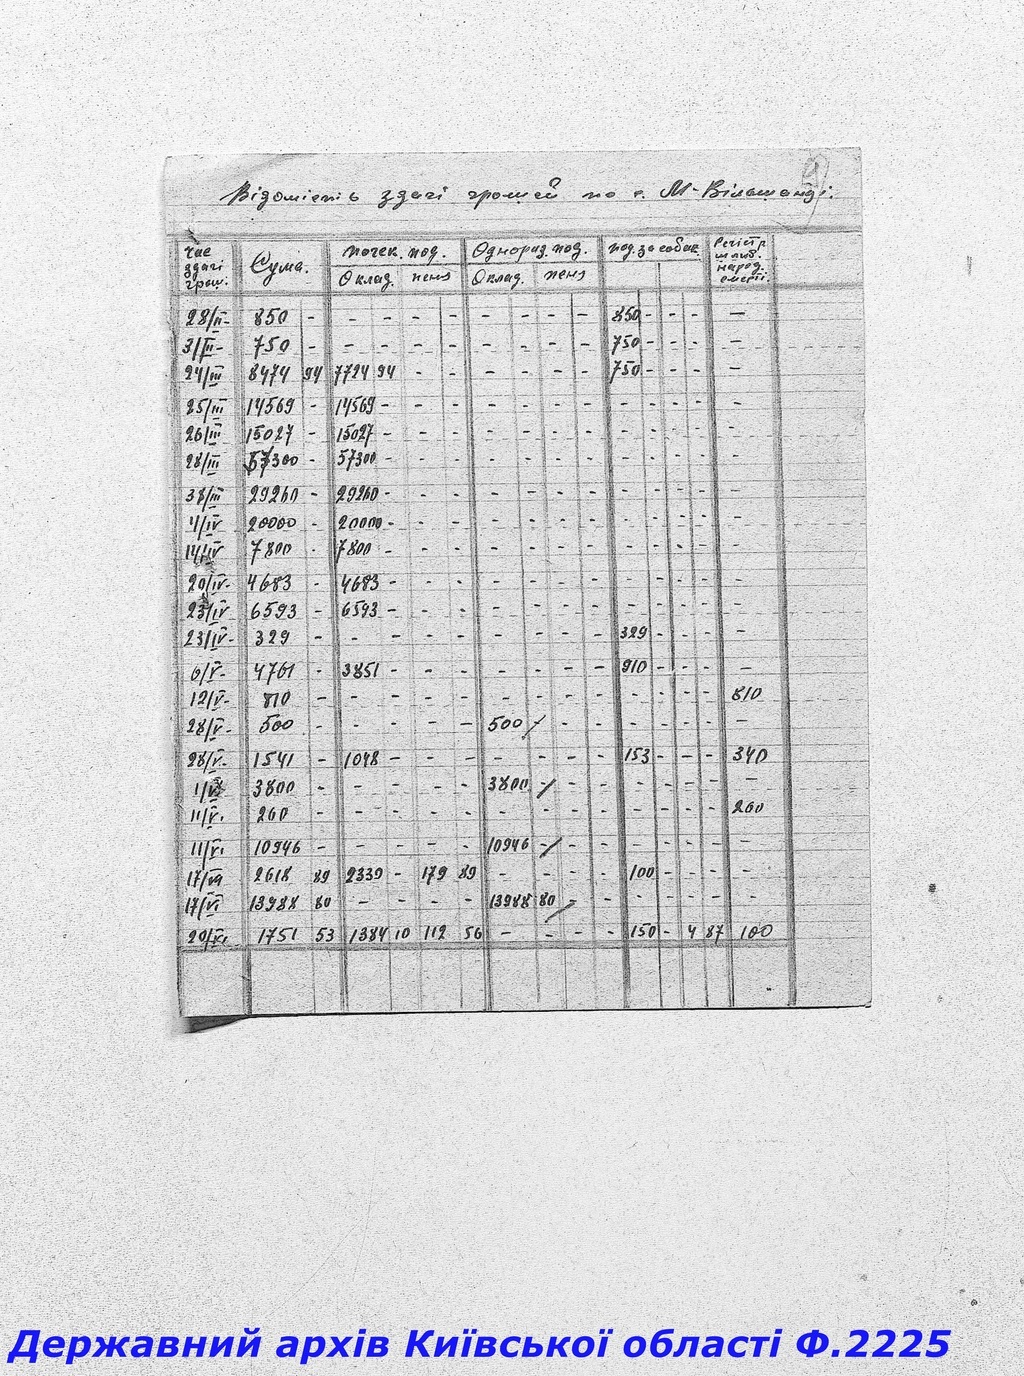 9
Відомість здачі грошей по с. М-Вільшанці.
Час здачі грош. Сума. почек. под. Однораз. под. под. за собак. Реєстр
Оклад. пеня Оклад. пеня народ.
28/II- 850 - - - - - - - - - 850 - - - -
3/III- 750 - - - - - - - - - 750 - - - -
24/III 8474 94 7724 94 - - - - - - 750 - - - -
25/III 14569 - 14569 - - - - - - - - - - - -
26/III 15027 - 15027 - - - - - - - - - - - -
28/III 57300 - 57300 - - - - - - - - - - - -
38/III 29260 - 29260 - - - - - - - - - - - -
4/IV 20000 - 20000 - - - - - - - - - - - -
14/IV 7800 - 7800 - - - - - - - - - - - -
20/IV- 4683 - 4683 - - - - - - - - - - - -
23/IV 6593 - 6593 - - - - - - - - - - - -
23/IV- 329 - - - - - - - - - 329 - - - -
6/V- 4761 - 3851 - - - - - - - 910 - - - -
12/V- 810 - - - - - - - - - - - - - 810
28/V- 500 - - - - - 500 - - - - - - - -
28/V- 1541 - 1048 - - - - - - - 153 - - - 340
1/VI 3800 - - - - - 3800 - - - - - - - -
11/VI 260 - - - - - - - - - - - - - 260
11/VI 10946 - - - - - 10946 - - - - - - - -
17/VI 2618 89 2339 - 179 89 - - - - 100 - - - -
17/VI 13988 80 - - - - 13988 80 - - - - - - -
20/VI 1751 53 1384 10 112 56 - - - - 150 - 4 87 100
Державний архів Київської області Ф.2225